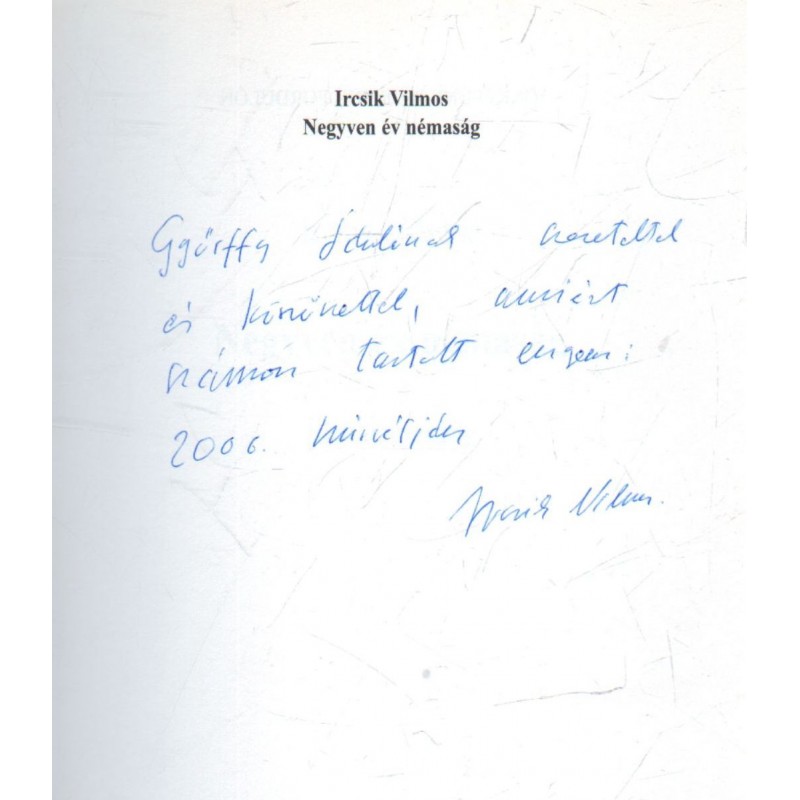 Ircsik Vilmos
Negyven év némaság
Győrffy szeretettel
és köszönettel, amiért
számon tartott engem:
2006.
Ircsik Vilmos.